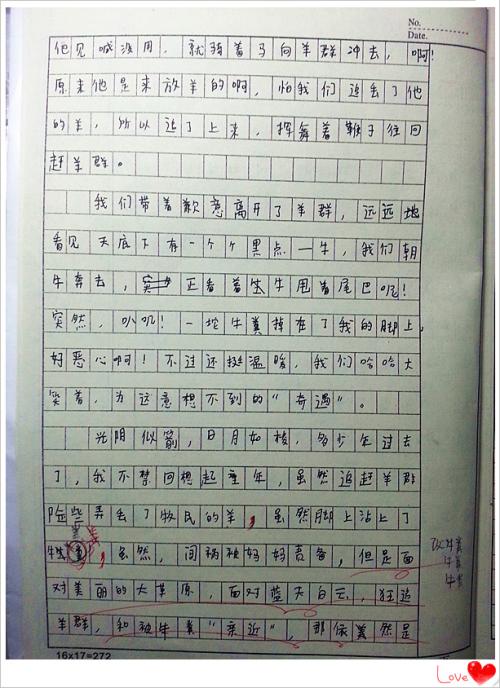 No.
Date.
他见喊没用，就骑着马向羊群冲去，啊！
原来他是来放羊的啊，怕我们追丢了他
的羊，所以追了上来，挥舞着鞭子往回
赶羊群。
我们带着歉意离开了羊群，远远地
看见天底下有一个个黑点—牛，我们朝
牛奔去，正看着牛甩着尾巴呢！
突然，叭叽！一坨牛粪掉在了我的脚上，
好恶心啊！不过还挺温暖，我们哈哈大
笑着，为这意想不到的“奇遇”。
光阴似箭，日月如梭，多少年过去
了，我不禁回想起童年，虽然追赶羊群
险些弄丢了牧民的羊，虽然脚上沾上了
牛粪，虽然，间被妈妈责备，但是面
对美丽的大草原，面对蓝天白云，狂追
羊群，和被牛粪“亲近”，那依然是
16x17=272
Love